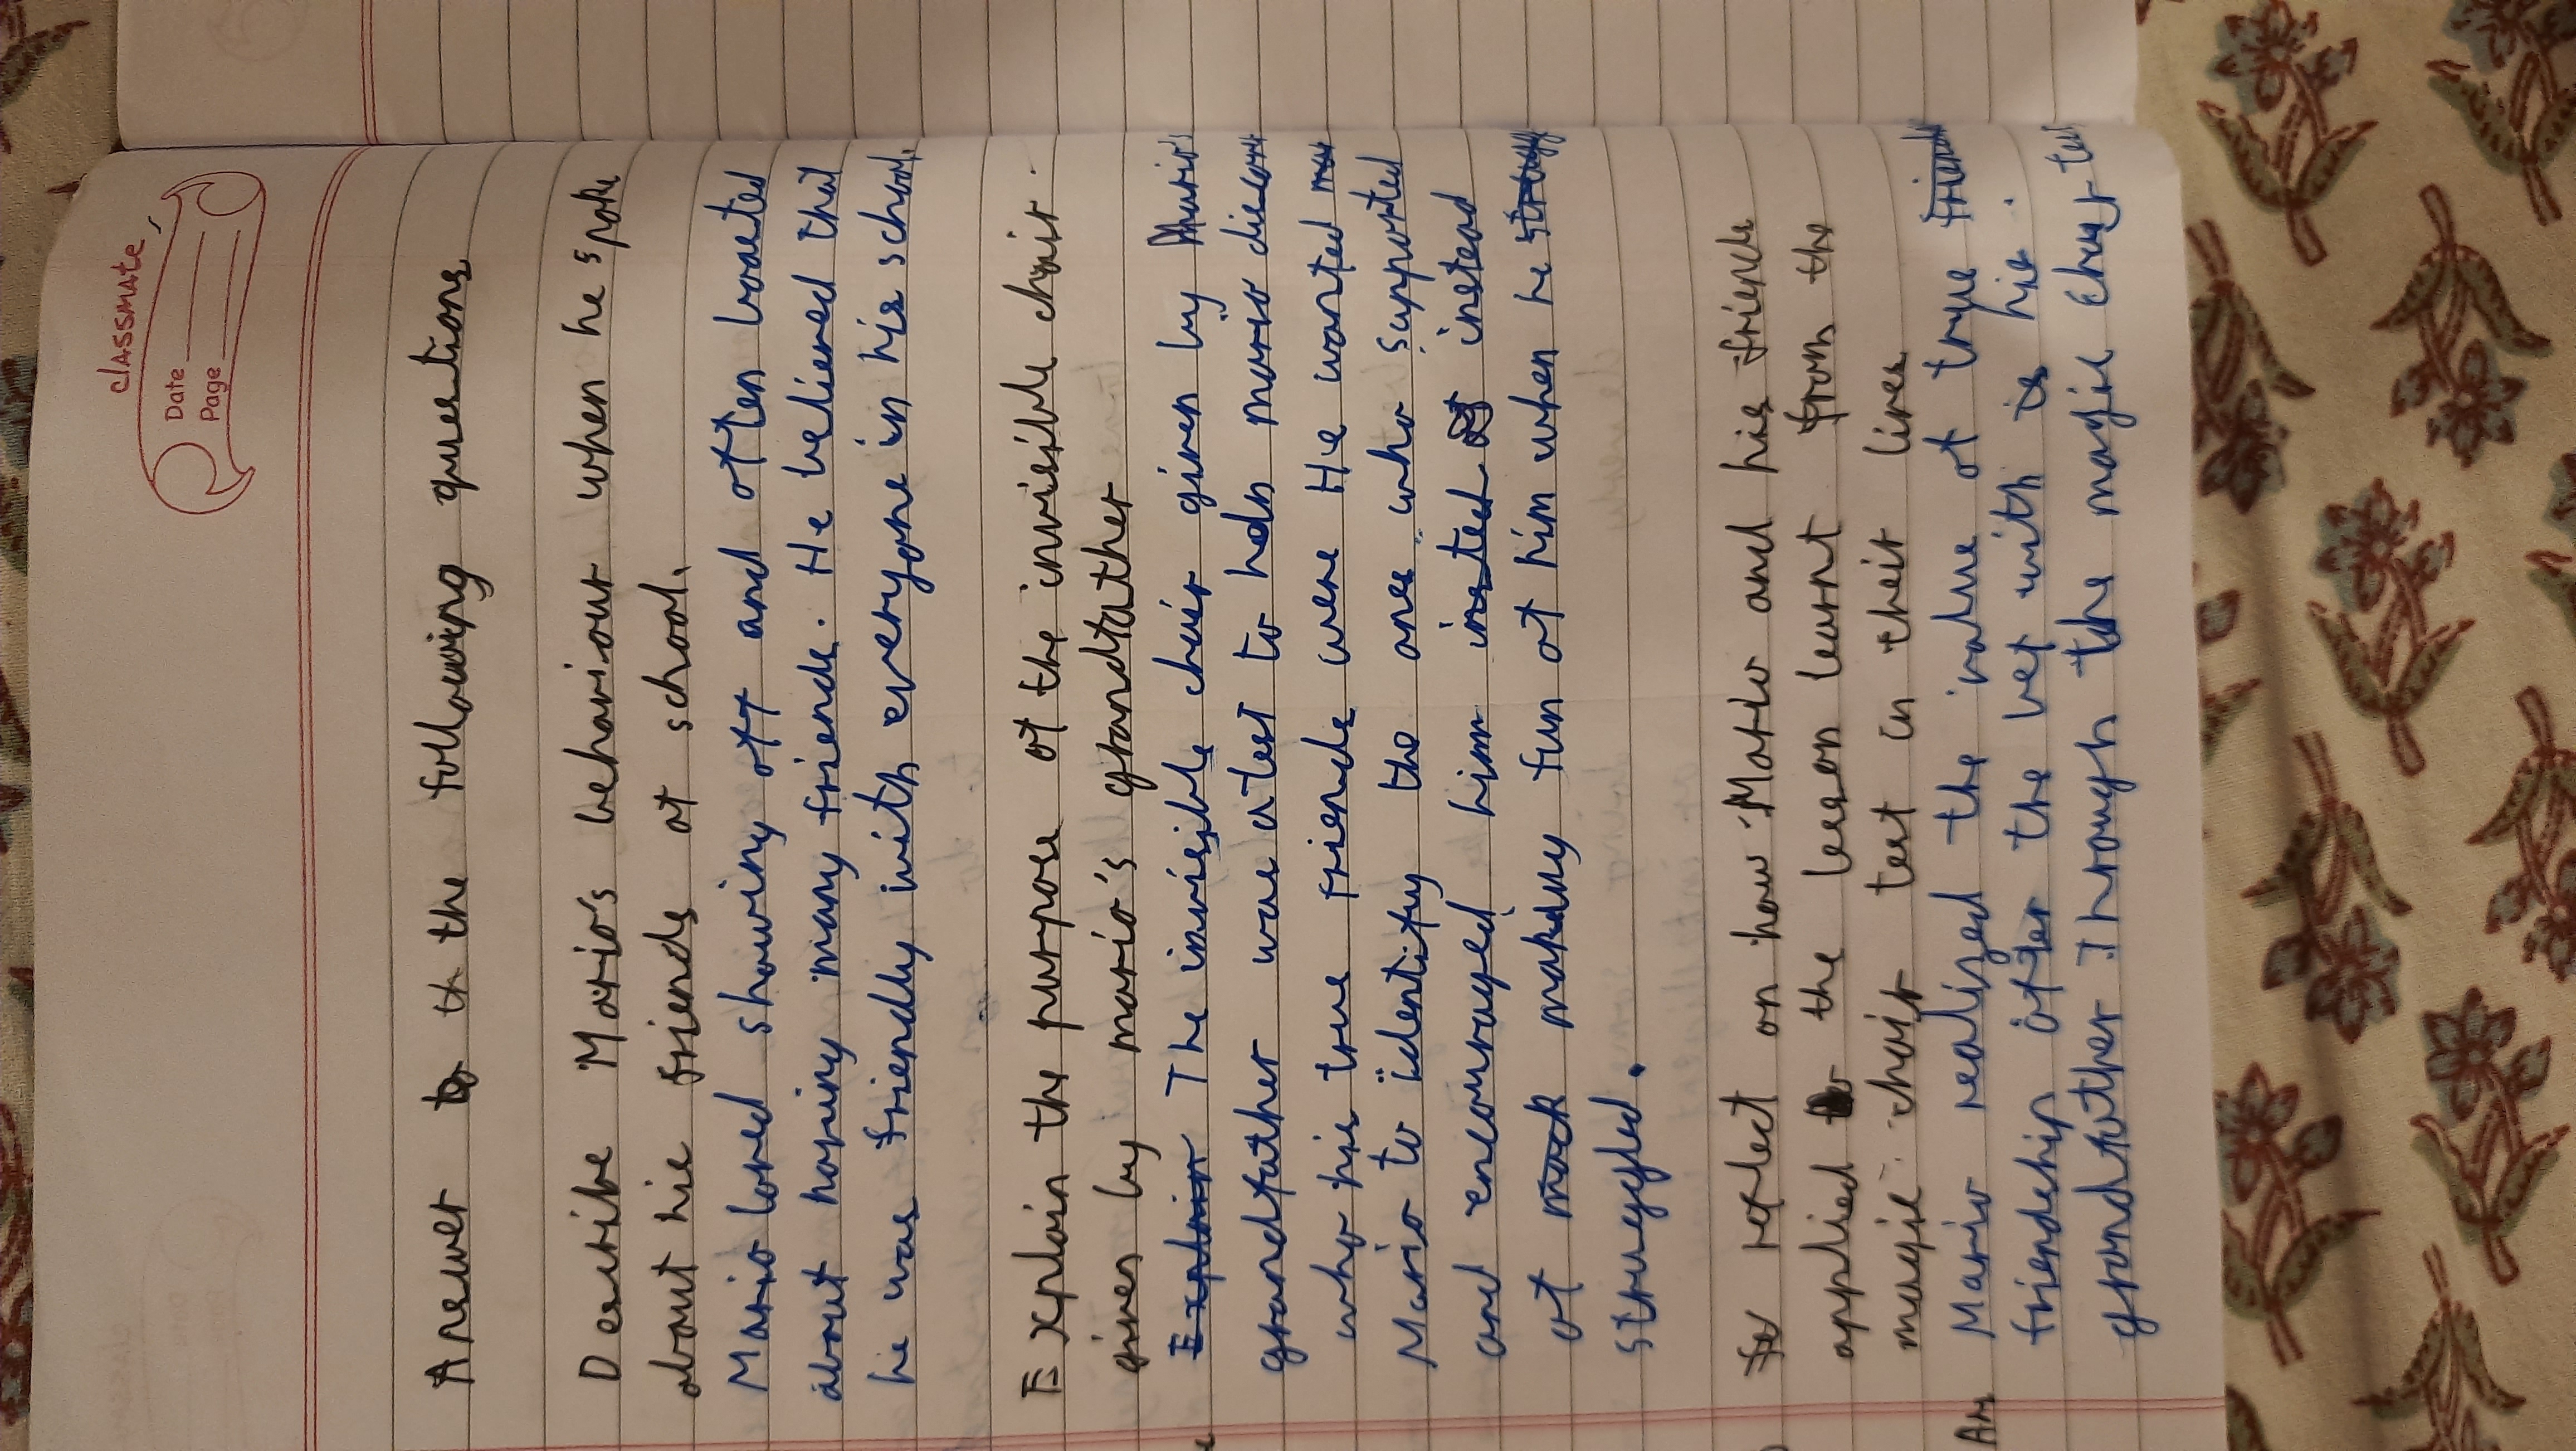 classmate
Date
Page
Answer to the following questions
Describe Mario's behaviour when he spoke
about his friends at school.
Mario loved showing off and often boasted
about having many friends. He believed that
he was friendly with everyone in his school.
Explain the purpose of the invisible chair
given by mario's grandfather
Explain The invisible chair given by Mario's
grandfather was a test to help mario discover
who his true friends were He wanted
Mario to identify the ones who supported
and encouraged him insted of instead
of mock making fun of him when he strugg
struggled.
reflect on how Mario and his friends
applied the lesson learnt from the
magic chair test in their lives
Ans Mario realized the value of true friends
friendship after the bet with is his
grandfather Through the magic chair test